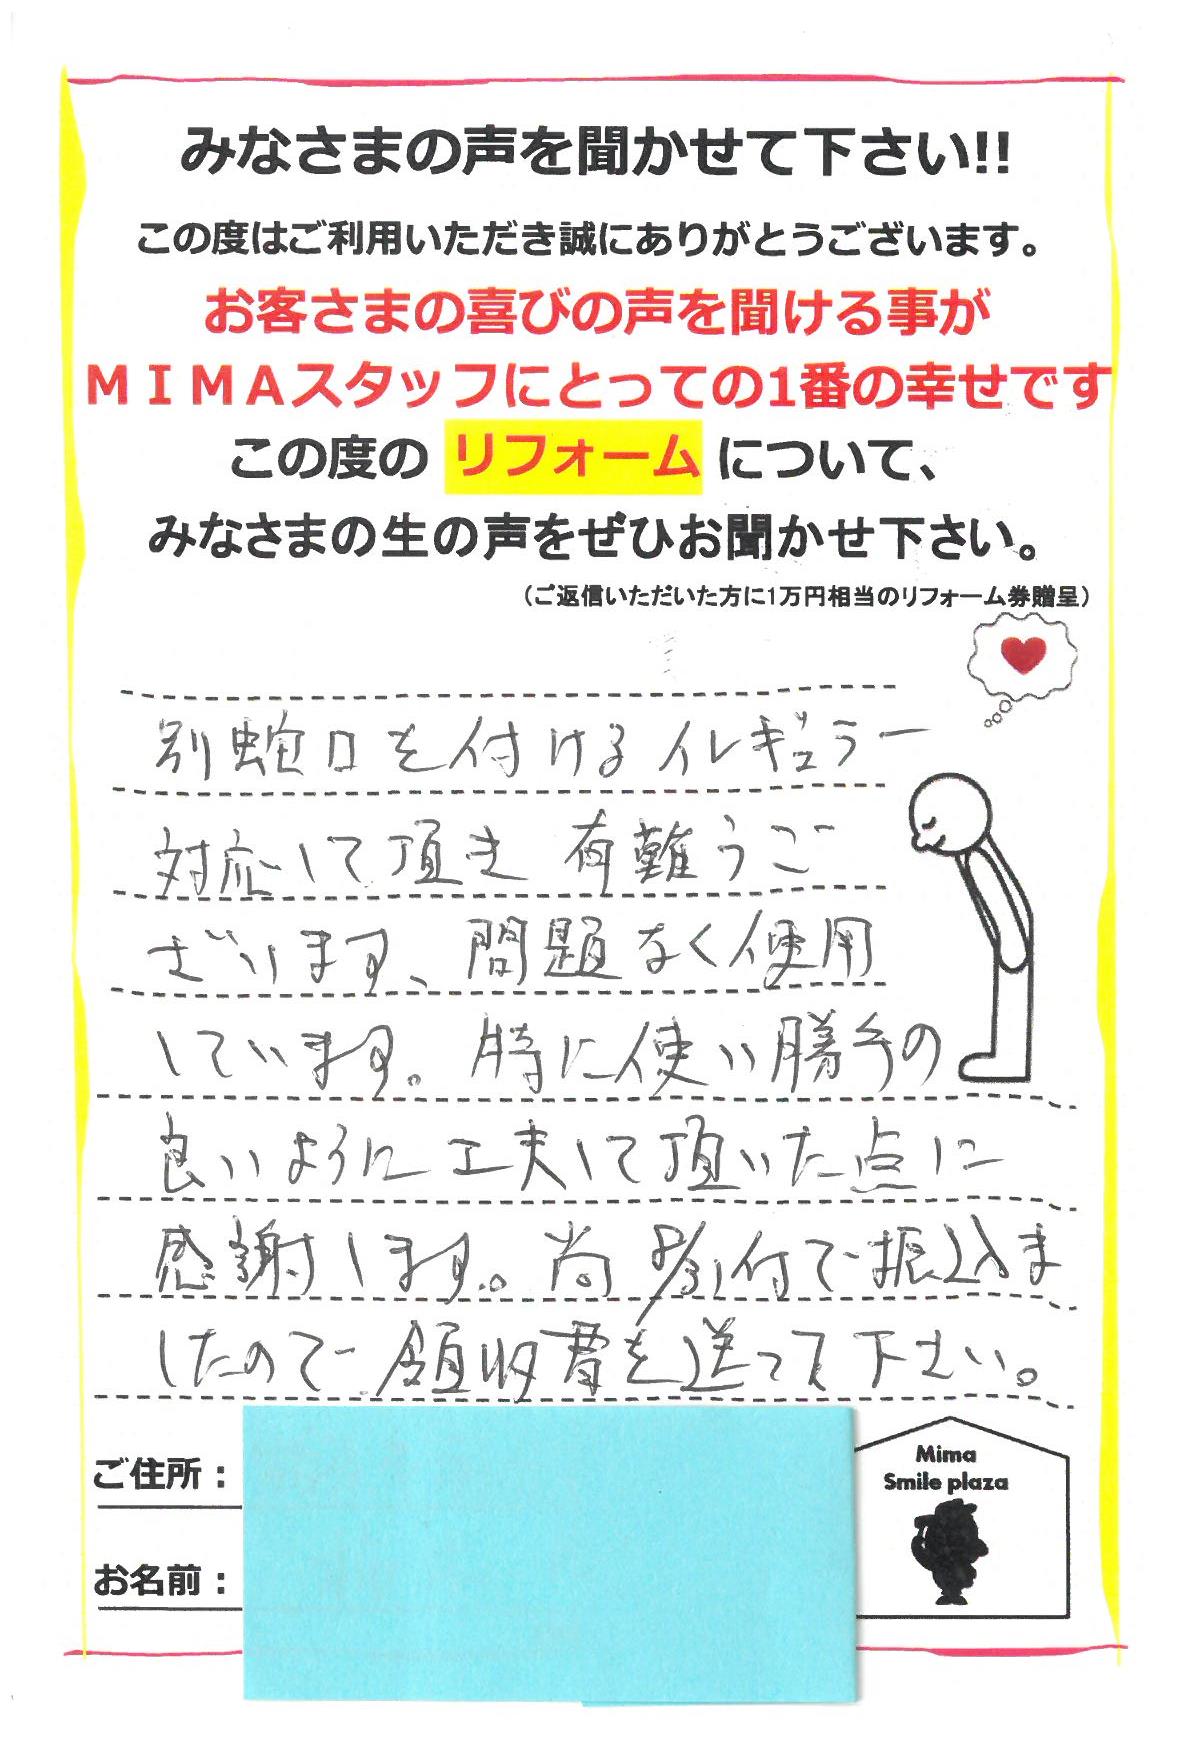 みなさまの声を聞かせて下さい!!
この度はご利用いただき誠にありがとうございます。
お客さまの喜びの声を聞ける事が
ＭＩＭＡスタッフにとっての1番の幸せです
この度の リフォーム について、
みなさまの生の声をぜひお聞かせ下さい。
（ご返信いただいた方に1万円相当のリフォーム券贈呈）
別蛇口を付けるイレギュラー
対応して頂き 有難うご
ざいます、問題なく使用
しています。特に使い勝手の
良いように工夫して頂いた点に
感謝します。尚 8/31付で振込ま
したので領収書を送って下さい。
ご住所：
お名前：
Mima
Smile plaza